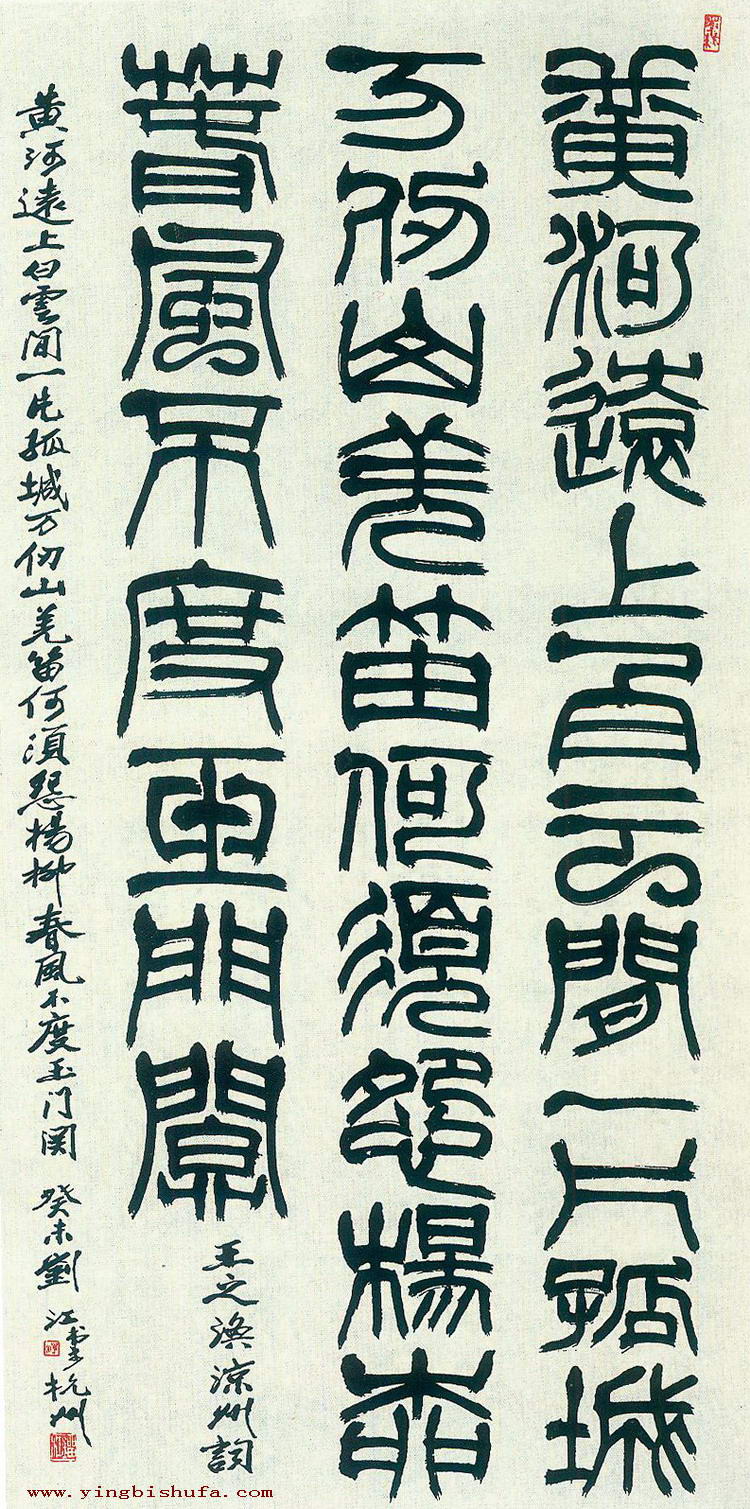 黄河遠上白云間一片孤城
万仞山羌笛何須怨楊柳
春風不度玉門關
王之渙涼州詞
黄河遠上白雲间一片孤城万仞山羌笛何須怨楊柳春風不度玉门関 癸未劉江书于杭州
www.yingbishufa.com